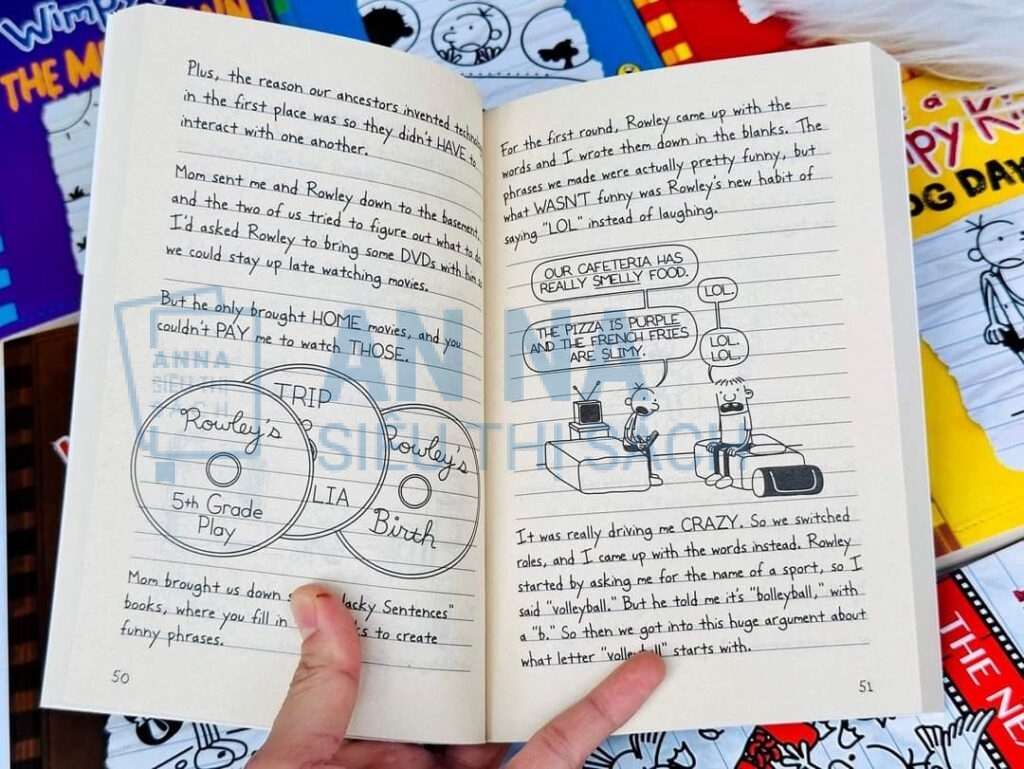 Wimpy
THE M
DOWN
Plus, the reason our ancestors invented
in the first place was so they didn't HAVE to
interact with one another.
Mom sent me and Rowley down to the basement,
and the two of us tried to figure out what to
I'd asked Rowley to bring some DVDs with him
we could stay up late watching movies.
But he only brought HOME movies, and you
couldn't PAY me to watch THOSE.
Rowley's
5th Grade
Play
TRIP
LIA
Rowley's
Birth
Mom brought us down "Wacky Sentences"
books, where you fill in to create
funny phrases.
50
For the first round, Rowley came up with the
words and I wrote them down in the blanks. The
phrases we made were actually pretty funny, but
what WASN'T funny was Rowley's new habit of
saying "LOL" instead of laughing.
OUR CAFETERIA HAS
REALLY SMELLY FOOD.
LOL.
THE PIZZA IS PURPLE
AND THE FRENCH FRIES
ARE SLIMY.
LOL.
LOL.
It was really driving me CRAZY. So we switched
roles, and I came up with the words instead. Rowley
started by asking me for the name of a sport, so I
said "volleyball." But he told me it's "bolleyball," with
a "b." So then we got into this huge argument about
what letter "volleyball" starts with.
51
ANNA
SIÊU THỊ
AN NA
SIÊU THỊ SÁCH
of a
mpy Ki
OG DAY
THE NE